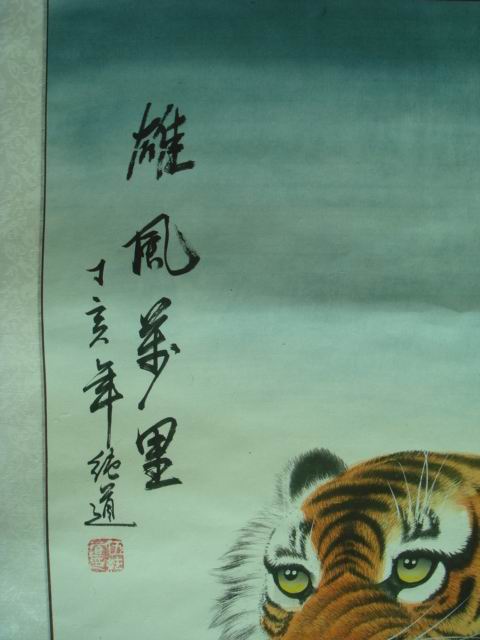 雄風萬里
丁亥年 道